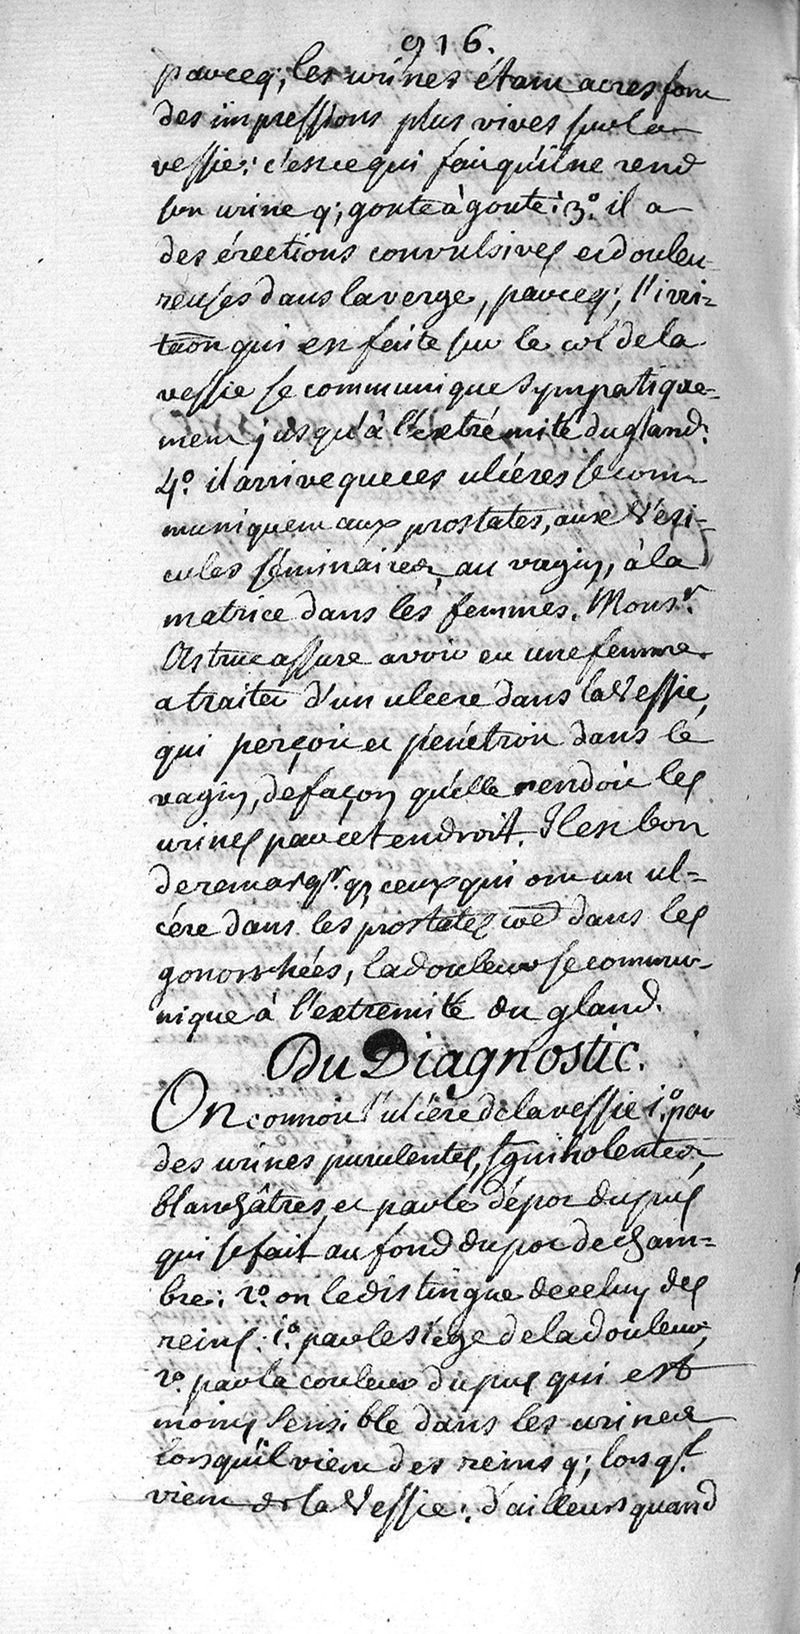 916.
parceq; les urines étant acres font
des impressions plus vives sur la
vessie: c'est ce qui fait qu'il ne rend
son urine q; goute à goute: 3º. il a
des érections convulsives et doulou
reuses dans la verge, parceq; l'irri-
taõn qui est faite sur le col de la
vessie se communique sympatique-
ment jusqu'à l'extrémité du gland:
4º. il arrive que ces ulcéres se com
muniquent aux prostates, aux Vesi-
cules séminaires, au vagin, à la
matrice dans les femmes. Monsr.
Astruc assure avoir eu une femme
a traiter d'un ulcere dans la Vessie,
qui perçoit et pénétroit dans le
vagin, de façon qu'elle rendoit les
urines par cet endroit. Il est bon
de remarqr. q; ceux qui ont un ul-
cére dans les prostates coẽ dans les
gonorrhées, la douleur se commu-
nique à l'extremité du gland.
Du Diagnostic.
On connoit l'ulcére de la vessie 1.º par
des urines purulentes, sguinolentes,
blanchâtres, et par le dépot du pus
qui se fait au fond du pot de cham-
bre: 2º. on le distingue de celuy des
reins: 1º. par le siége de la douleur,
2º. par la couleur du pus qui est
moins sensible dans les urines
lorsqu'il vient des reins q; lorsql
vient de la Vessie: d'ailleurs quand